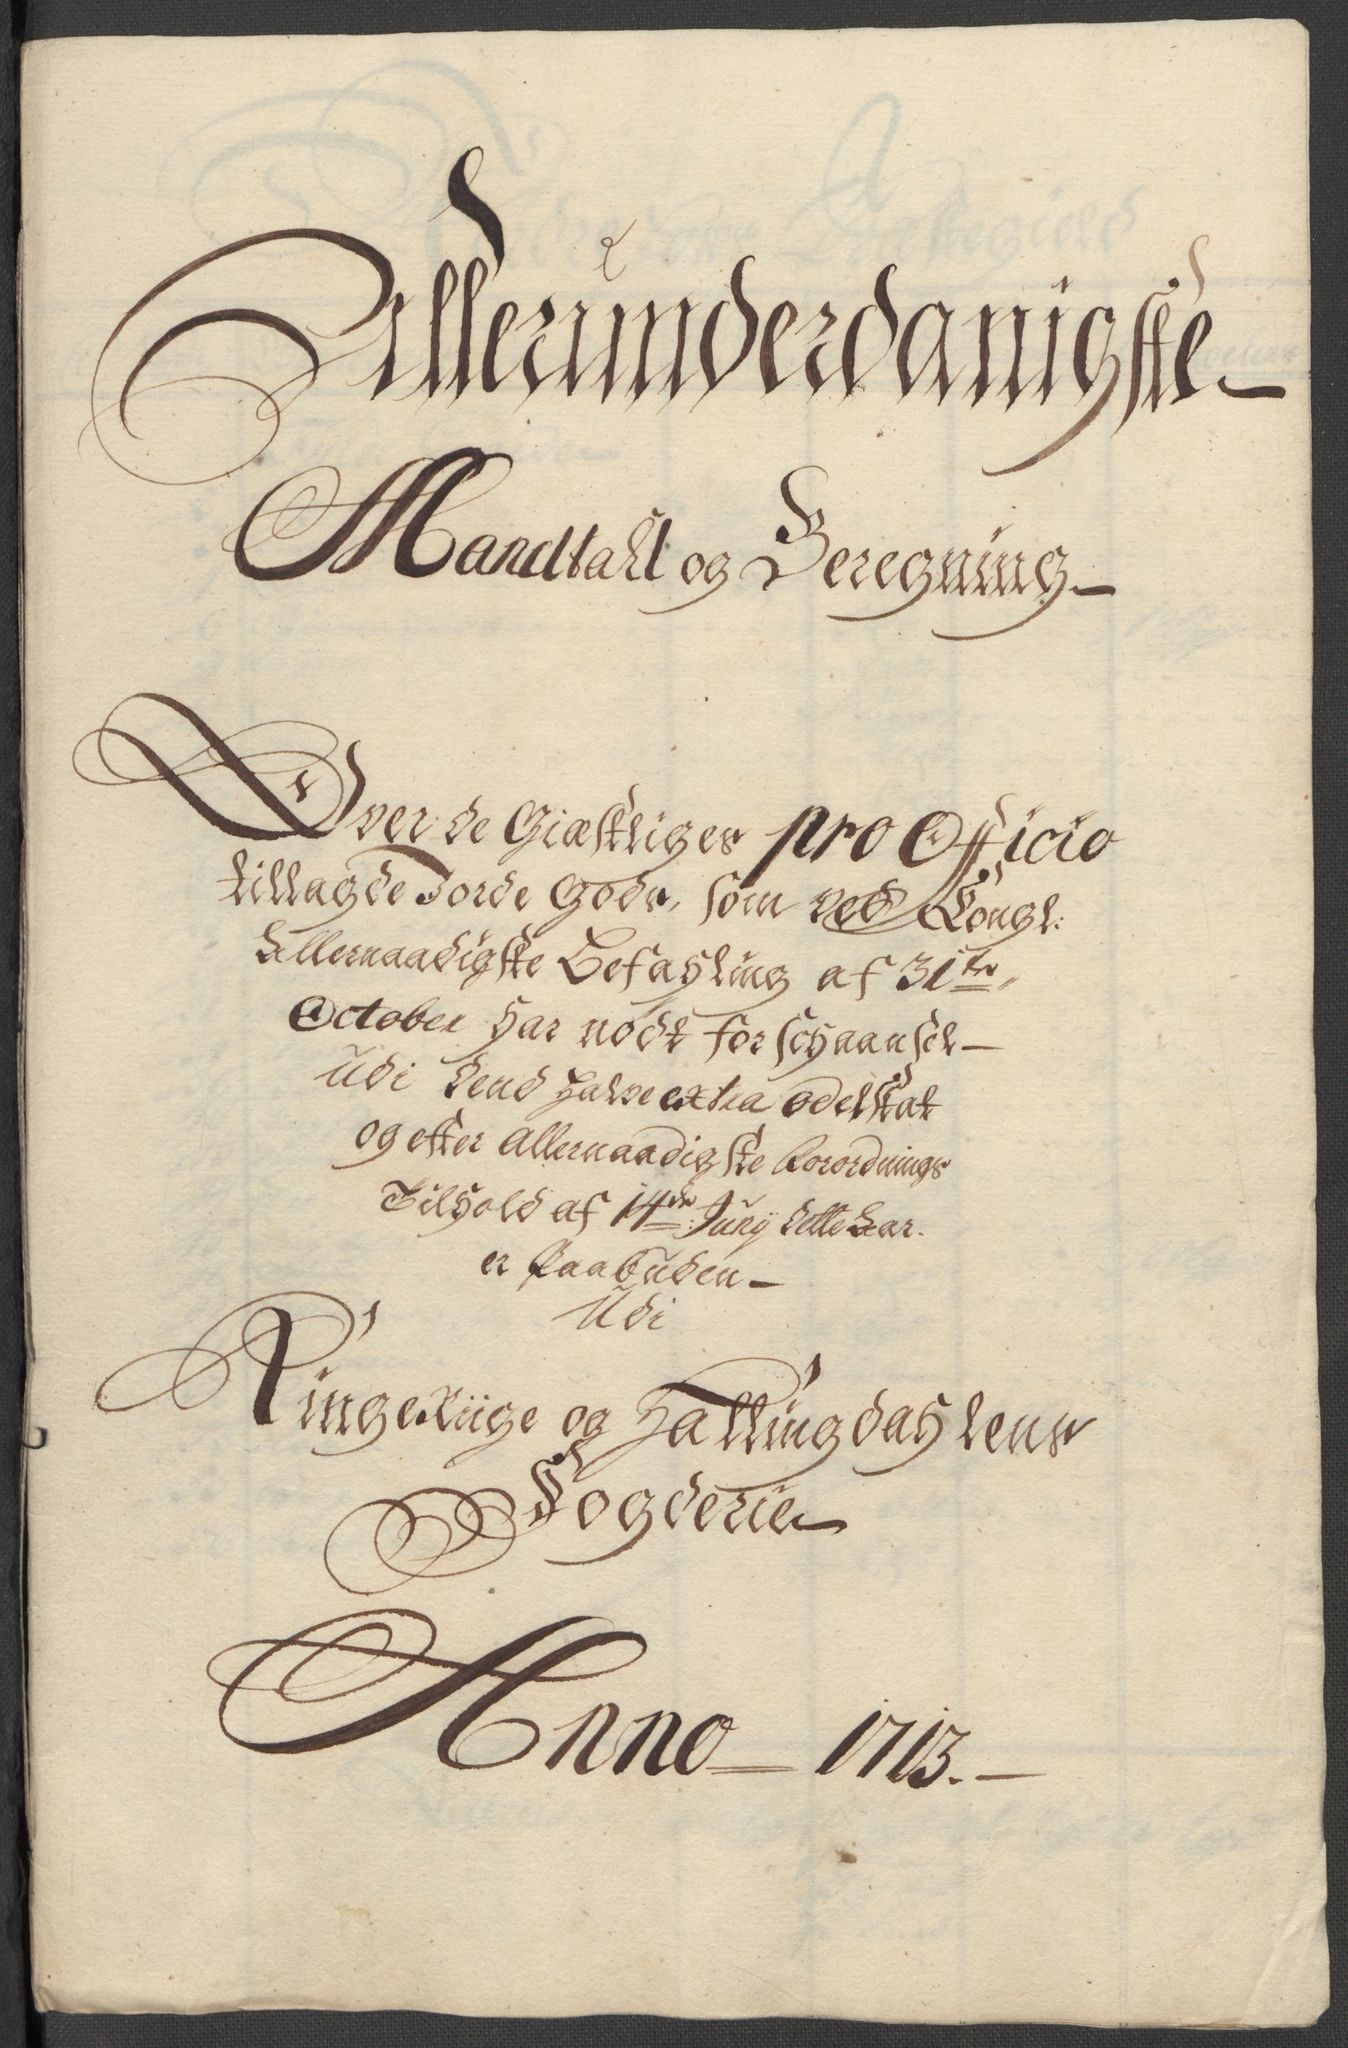 Allerunderdanigste
Mandtall og Beregning
Over de Giæstliges pro Officio
tillagde Jorde Gods, som ved Kongl:
Allernaadigste Befahling af 31te
October har nødt forschaansel
Udi dend halve extra odelskat
og efter allernaadigste Forordnings
Tilhold af 14de Junij dette Aar
er Paabuden
Udi
RingeRiige og Hallingdahlens
Fogderie
Anno 1713.